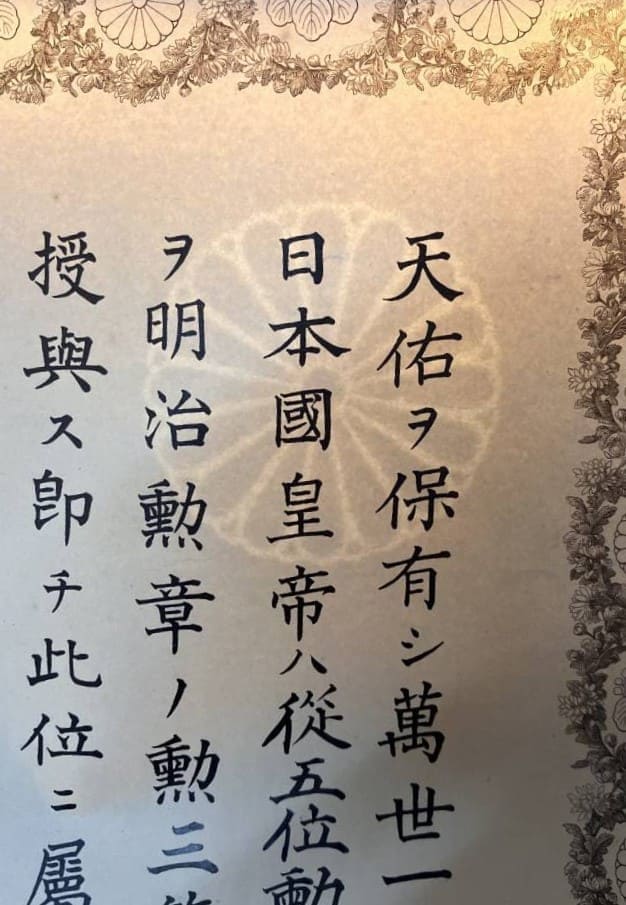 天佑ヲ保有シ萬世一
日本國皇帝ハ從五位勳
ヲ明治勳章ノ勳三
授與ス卽チ此位ニ屬